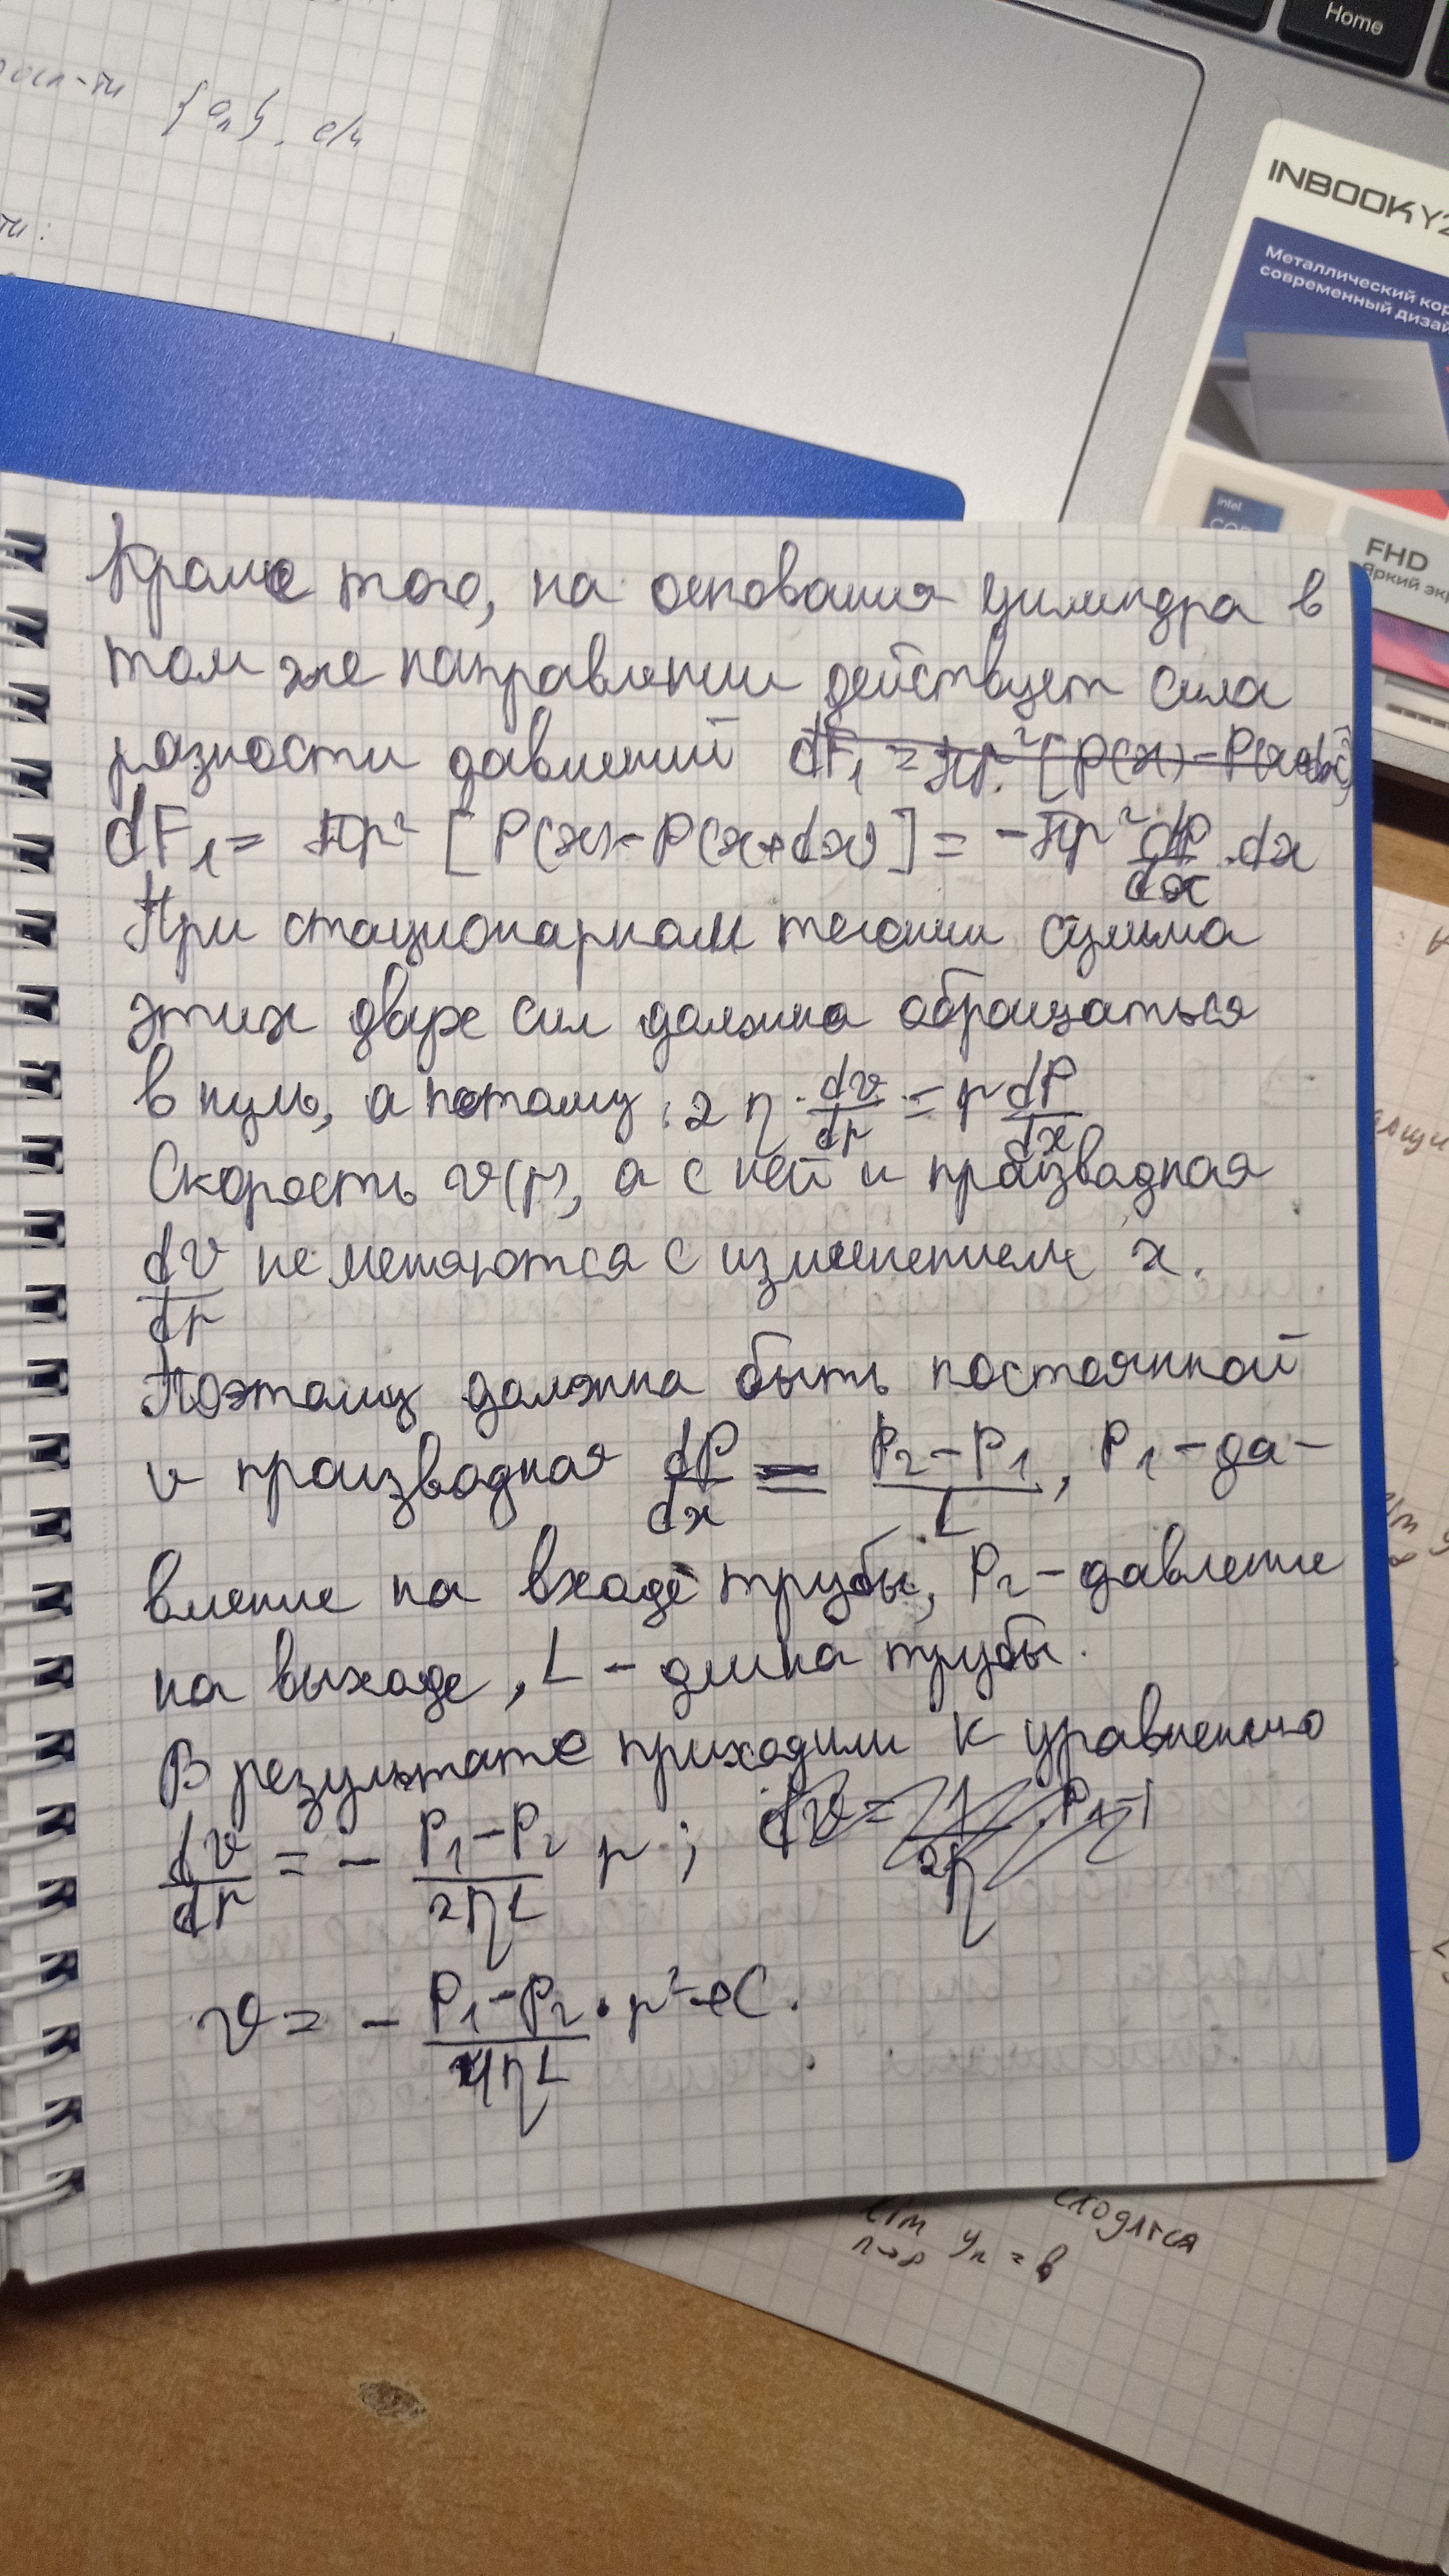 Home
{aₙ}, е/ч
INBOOK Y2
Металлический кор
современный дизай
intel
COR
FHD
Яркий экр
Кроме того, на основания цилиндра в
том же направлении действует сила
разности давлений dF₁ = πr² [P(x) - P(x+dx)]
dF₁ = πr² [P(x) - P(x+dx)] = -πr² dP/dx · dx
При стационарном течении сумма
этих двух сил должна обращаться
в нуль, а потому: 2η · dv/dr = r dP/dx
Скорость v(r), а с ней и производная
dv/dr не меняются с изменением x.
Поэтому должна быть постоянной
и производная dP/dx = (P₂ - P₁)/L, P₁ - да-
вление на входе трубы, P₂ - давление
на выходе, L - длина трубы.
В результате приходим к уравнению
dv/dr = - (P₁ - P₂)/(2ηL) r;
v = - (P₁ - P₂)/(4ηL) · r² + C.
сходится
lim n→∞ yₙ = b